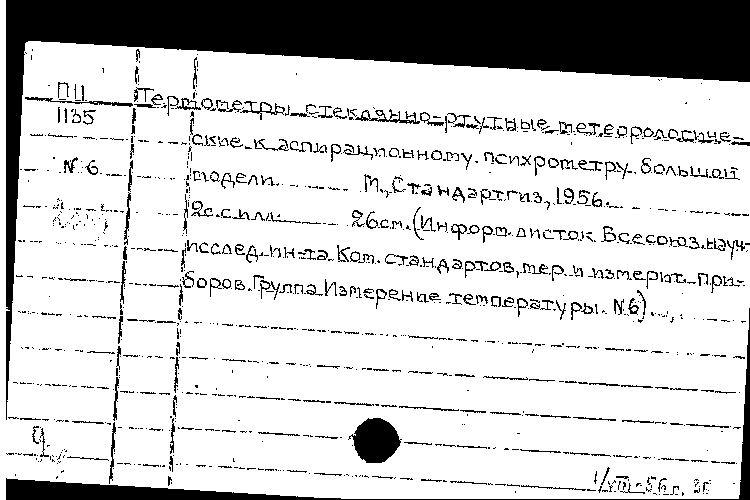 П11
1135
№ 6
Термометры стеклянно-ртутные метеорологиче-
ские к аспирационному психрометру большой
модели. М., Стандартгиз, 1956.
2с. с илл. 26см. (Информ. листок Всесоюз. науч.-
исслед. ин-та Ком. стандартов, мер и измерит. при-
боров. Группа Измерение температуры. №6).
1/VIII-56г.